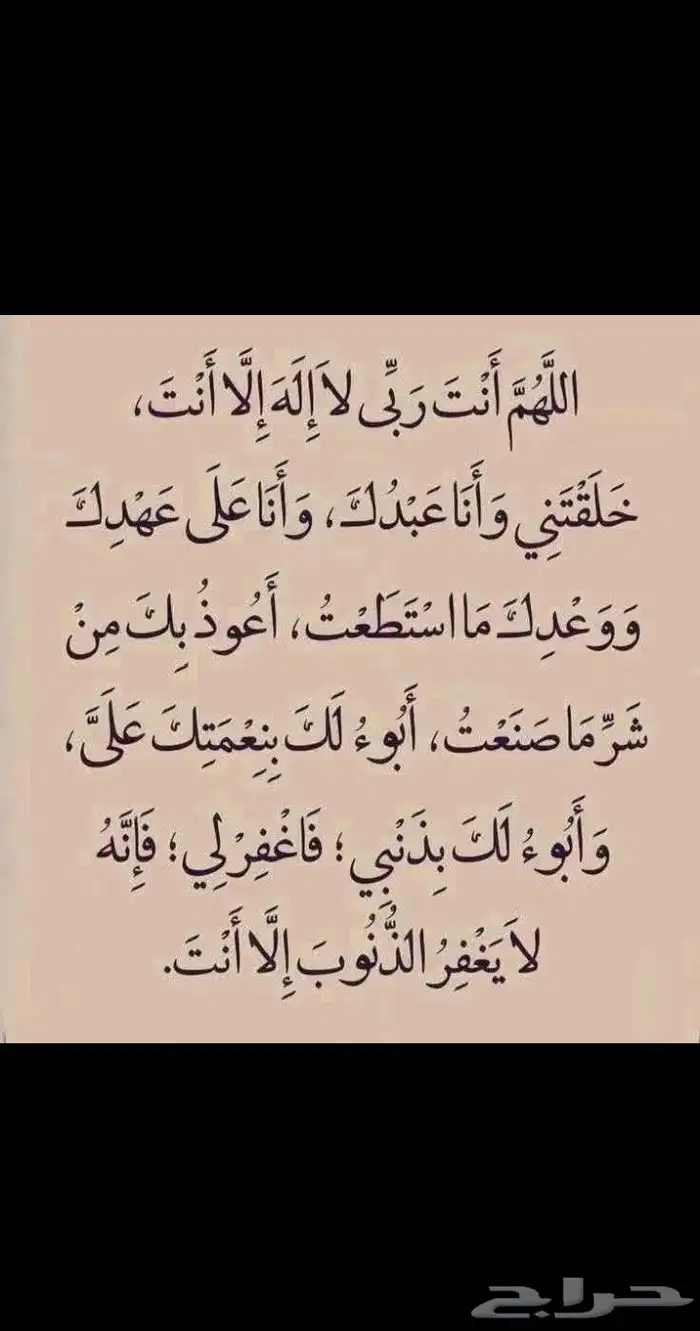 اللَّهُمَّ أَنْتَ رَبِّى لاَ إِلَهَ إِلَّا أَنْتَ،
خَلَقْتَنِي وَأَنَا عَبْدُكَ، وَأَنَا عَلَى عَهْدِكَ
وَوَعْدِكَ مَا اسْتَطَعْتُ، أَعُوذُ بِكَ مِنْ
شَرِّ مَا صَنَعْتُ، أَبُوءُ لَكَ بِنِعْمَتِكَ عَلَىَّ،
وَأَبُوءُ لَكَ بِذَنْبِي؛ فَاغْفِرْ لِي؛ فَإِنَّهُ
لاَ يَغْفِرُ الذُّنُوبَ إِلَّا أَنْتَ.
حراج